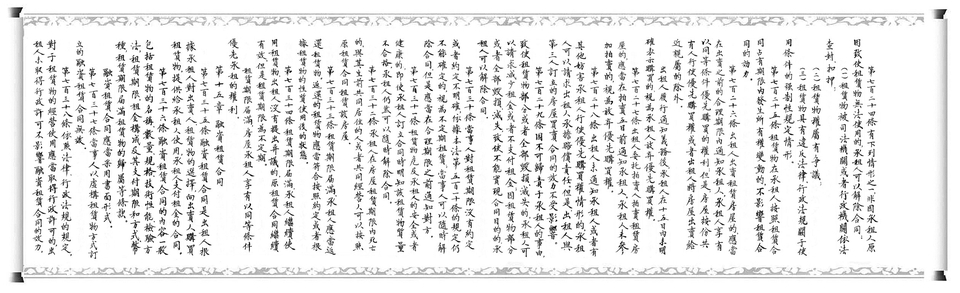 第七百二十四條 有下列情形之一非因承租人原
因致使租賃物無法使用的承租人可以解除合同
(一)租賃物被司法機關或者行政機關依法
查封扣押
(二)租賃物權屬有爭議
(三)租賃物具有違反法律、行政法規關于使
用條件的強制性規定情形。
第七百二十五條 租賃物在承租人按照租賃合
同占有期限內發生所有權變動的不影響租賃合
同的效力。
第七百二十六條 出租人出賣租賃房屋的應當
在出賣之前的合理期限內通知承租人承租人享有
以同等條件優先購買的權利但是房屋按份共
有人行使優先購買權或者出租人將房屋出賣給
近親屬的除外。
出租人履行通知義務後承租人在十五日內未明
確表示購買的視為承租人放棄優先購買權。
第七百二十七條 出租人委托拍賣人拍賣租賃房
屋的應當在拍賣五日前通知承租人承租人未參
加拍賣的視為放棄優先購買權。
第七百二十八條 出租人未通知承租人或者有
其他妨害承租人行使優先購買權情形的承租
人可以請求出租人承擔賠償責任但是出租人與
第三人訂立的房屋買賣合同的效力不受影響
第七百二十九條 因不可歸責于承租人的事由
致使租賃物部分或者全部毀損滅失的承租人可
以請求減少租金或者不支付租金因租賃物部分
或者全部毀損滅失致使不能實現合同目的的承
租人可以解除合同
第七百三十條 當事人對租賃期限沒有約定
或者約定不明確依據本法第五百一十條的規定仍
不能確定的視為不定期租賃當事人可以隨時解
除合同但是應當在合理期限之前通知對方。
第七百三十一條 租賃物危及承租人的安全或者
健康的即使承租人訂立合同時明知該租賃物質量
不合格承租人仍然可以隨時解除合同
第七百三十二條 承租人在房屋租賃期限內死亡
的與其生前共同居住的人或者共同經營人可以按照
原租賃合同租賃該房屋
第七百三十三條 租賃期限屆滿承租人應當返
還租賃物返還的租賃物應當符合按照約定或者根
據租賃物的性質使用後的狀態。
第七百三十四條 租賃期限屆滿承租人繼續使
用租賃物出租人沒有提出異議的原租賃合同繼續
有效但是租賃期限為不定期。
租賃期限屆滿房屋承租人享有以同等條件
優先承租的權利。
第十五章 融資租賃合同
第七百三十五條 融資租賃合同是出租人根
據承租人對出賣人、租賃物的選擇向出賣人購買
租賃物提供給承租人使用承租人支付租金的合同。
第七百三十六條 融資租賃合同的內容一般
包括租賃物的名稱數量規格技術性能檢驗方
法租賃期限租金構成及其支付期限和方式幣
種租賃期限屆滿租賃物的歸屬等條款。
融資租賃合同應當采用書面形式。
第七百三十七條 當事人以虛構租賃物方式訂
立的融資租賃合同無效。
第七百三十八條 依照法律、行政法規的規定
對于租賃物的經營使用應當取得行政許可的出
租人未取得行政許可不影響融資租賃合同的效力